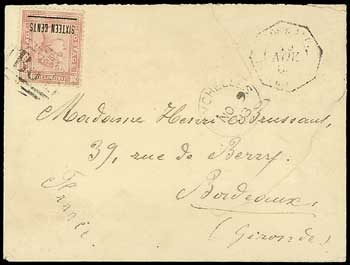 SIXTEEN CENTS
B
Madame Henri Brussaut,
39, rue de Berry.
Bordeaux
(Gironde)
France